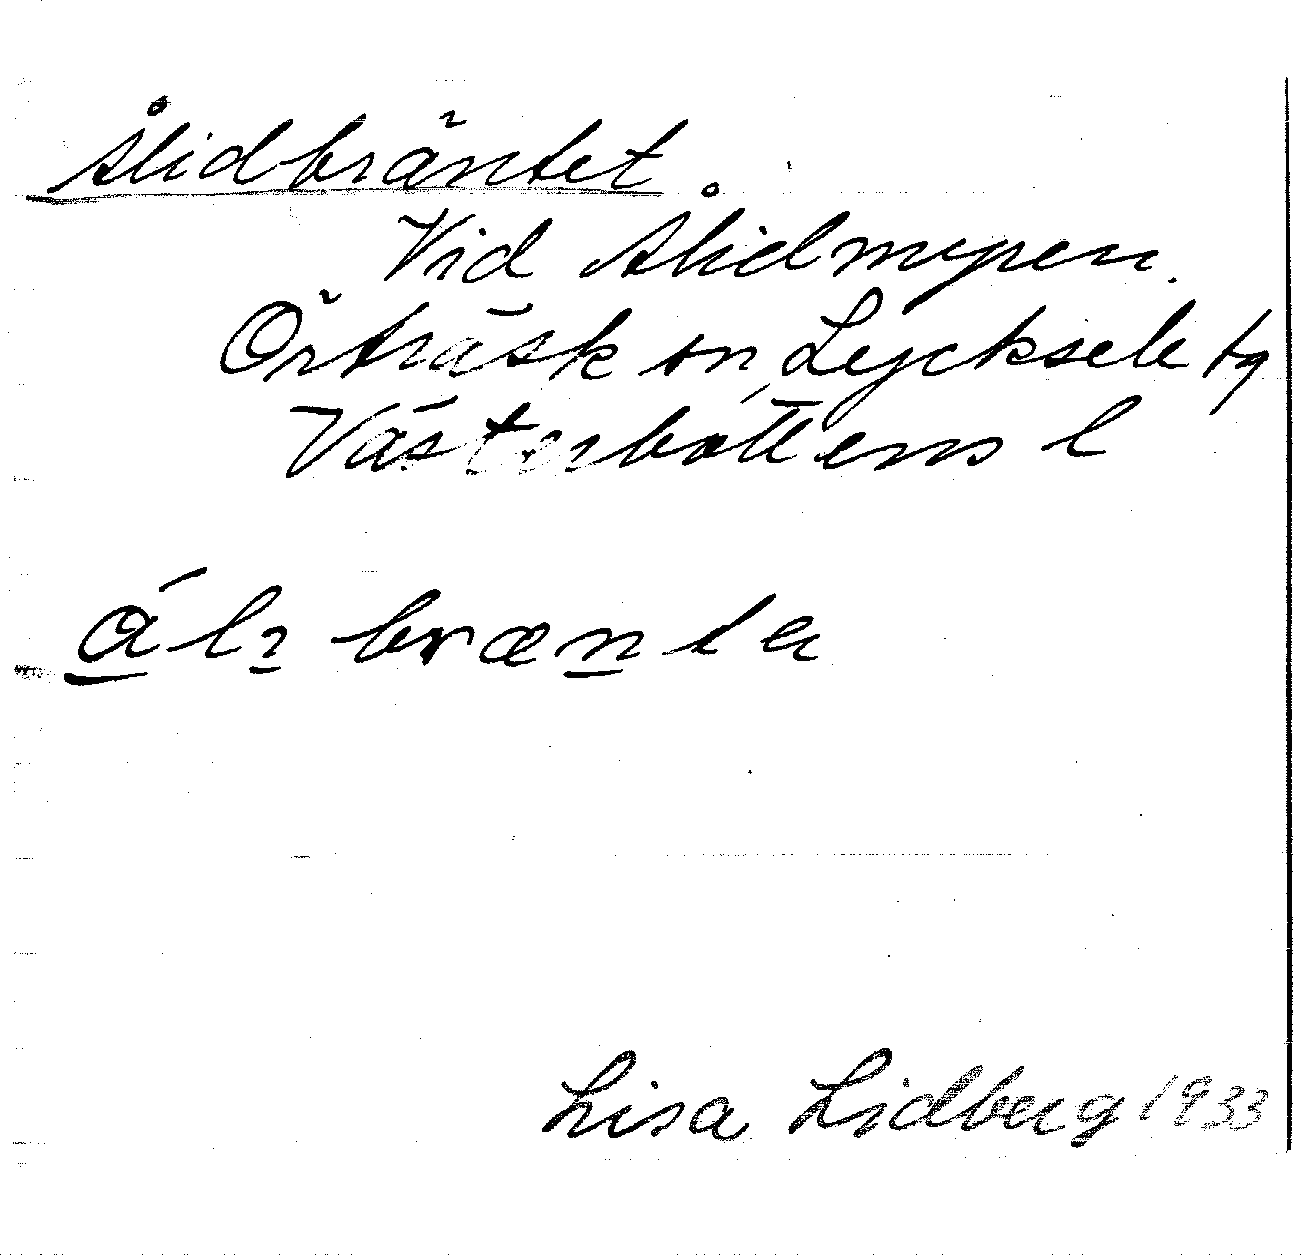 Ålidbräntet.
Vid Ålidmyren.
Örträsk sn, Lycksele tg
Västerbottens l
Lisa Lidberg 1933